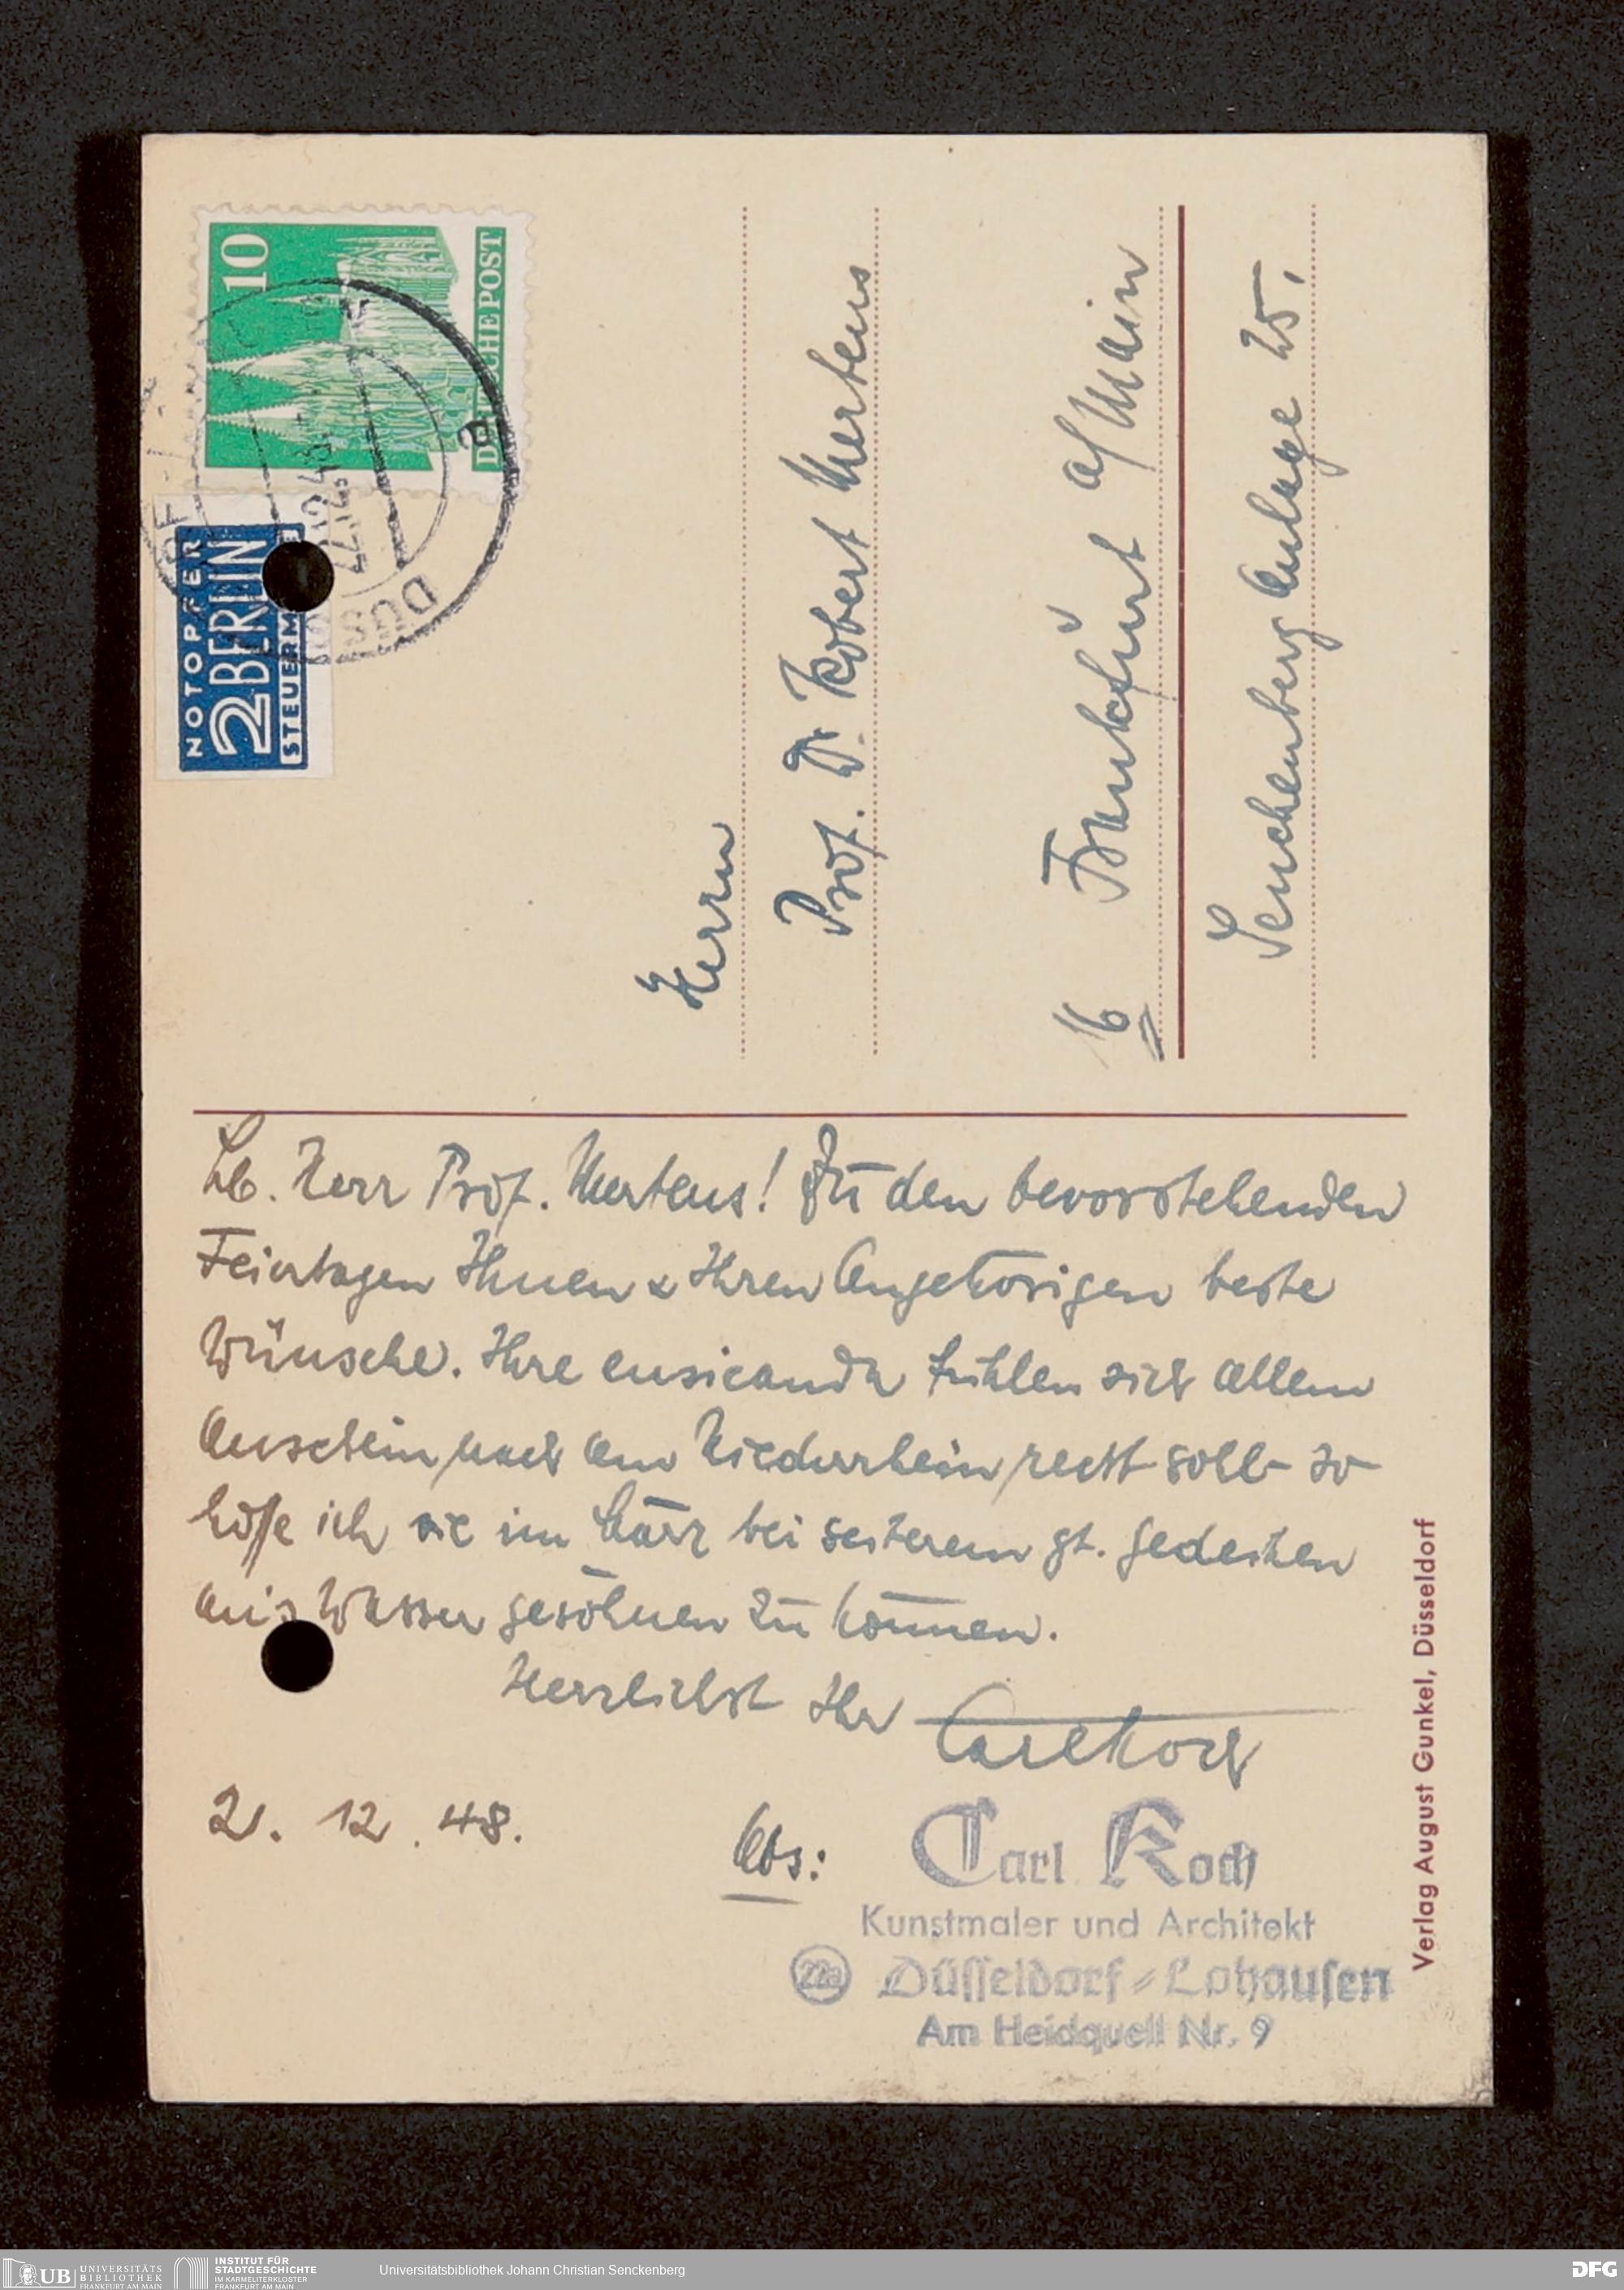 10
DEUTSCHE POST
NOTOPFER
2 BERLIN
STEUERM
DÜSS
a
Herrn
Prof. Dr. Robert Mertens
16 Frankfurt a/Main
Senckenberg Anlage 25.
Lb. Herr Prof. Mertens! Zu den bevorstehenden
Feiertagen Ihnen & Ihren Angehörigen beste
Wünsche. Ihre ensicauda fühlen sich allem
Anschein nach am Niederrhein recht wohl so
hoffe ich sie im März bei weiterem gt. Gedeihen
ans Wasser gewöhnen zu können.
Herzlichst Ihr Carl Koch
21. 12. 48.
Abs:
Carl Koch
Kunstmaler und Architekt
22a Düsseldorf-Lohausen
Am Heidquell Nr. 9
Verlag August Gunkel, Düsseldorf
UB UNIVERSITÄTS
BIBLIOTHEK
FRANKFURT AM MAIN
INSTITUT FÜR
STADTGESCHICHTE
IM KARMELITERKLOSTER
FRANKFURT AM MAIN
Universitätsbibliothek Johann Christian Senckenberg
DFG